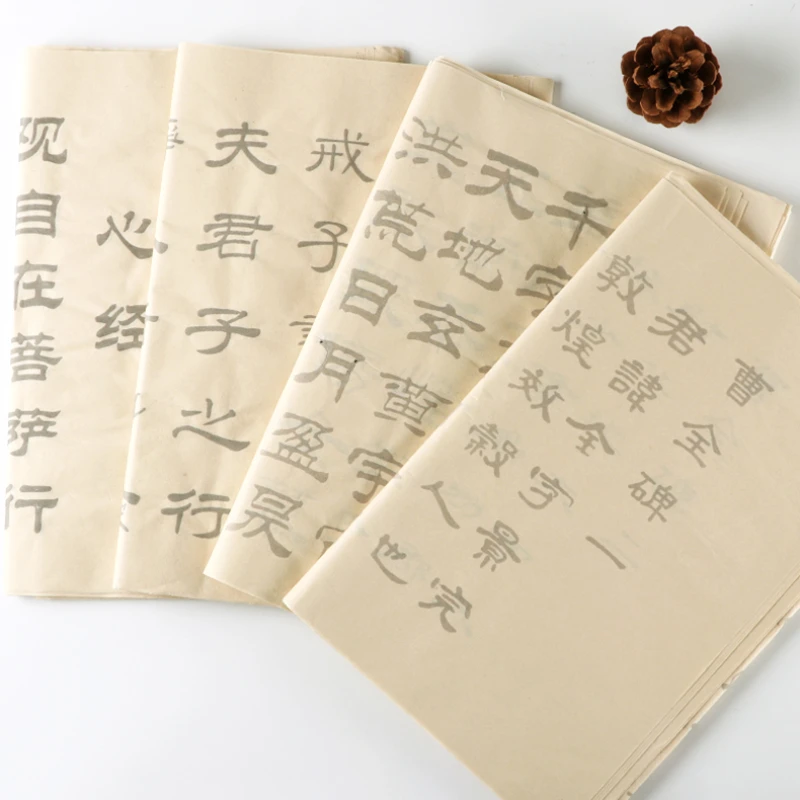 心经
观自在菩萨行
戒子
夫君子之行
千字
天地玄黄宇
洪荒日月盈昃
曹全碑一
君諱全字景完
敦煌效穀人也